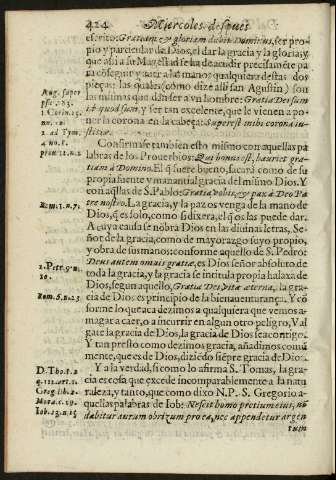 424 Miercoles despues
escrito: Gratiam & gloriam dabit Dominus, ser pro-
pio y particular de Dios, el dar la gracia y la gloria: y
que assi a su Magestad se ha de acudir precisamēte pa
ra cōseguir y auer a las manos qualquiera destas dos
Aug. super
pieças: las quales (como dize alli san Agustin) son
las mismas que dā ser a vn hombre: Gratia Dei sum
1. Corin. 15.
id quod sum, y ser tan excelente, que le vienen a po-
ner la corona en la cabeça: Superest mihi corona iu-
2. ad Tym.
stitiæ.
4. nu. 8.
Confirmase tambien esto mismo con aquellas pa
labras de los Prouerbios: Qui bonus est, hauriet gra-
tiam à Domino. El q̄ fuere bueno, sacarà como de su
propia fuente y manantial gracia del mismo Dios. Y
con aq̄llas de S. Pablo: Gratia vobis, & pax à Deo Pa
Rom. 1. n. 7.
tre nostro. La gracia, y la paz os venga de la mano de
Dios, q̄ es solo, como si dixera, el q̄ os las puede dar.
A cuya causa se nōbra Dios en las diuinas letras, Se-
ñor de la gracia, como de mayorazgo suyo propio,
y obra de sus manos: conforme aquello de S. Pedro:
Deus autem omnis gratiæ, es Dios señor absoluto de
toda la gracia, y la gracia se intitula propia halaxa de
Dios, segun aquello, Gratia Dei vita æterna, la gra-
Rom. 6. n. 23
cia de Dios es principio de la bienauenturança. Y cō
forme lo que acaezimos a qualquiera que vemos a-
magar a caer, o a incurrir en algun otro peligro, Val
gate la gracia de Dios, la gracia de Dios sea contigo.
Y tan presto como dezimos gracia, añadimos comū
mente, que es de Dios, diziēdo siēpre gracia de Dios.
Y a la verdad, si como lo afirma S. Tomas, la gra-
D. Tho. 1. 2.
cia es cosa que excede incomparablemente a la natu
raleza, y tanto, que como dixo N. P. S. Gregorio a-
quellas palabras de Iob: Nescit homo pretium eius, nō
Iob. 28. n. 15
dabitur aurum obrizum pro ea, nec appendetur argen
tum